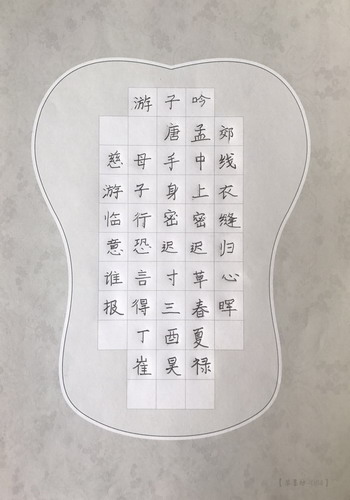 游子吟
唐孟郊
慈母手中线
游子身上衣
临行密密缝
意恐迟迟归
谁言寸草心
报得三春晖
丁酉夏
崔昊禄